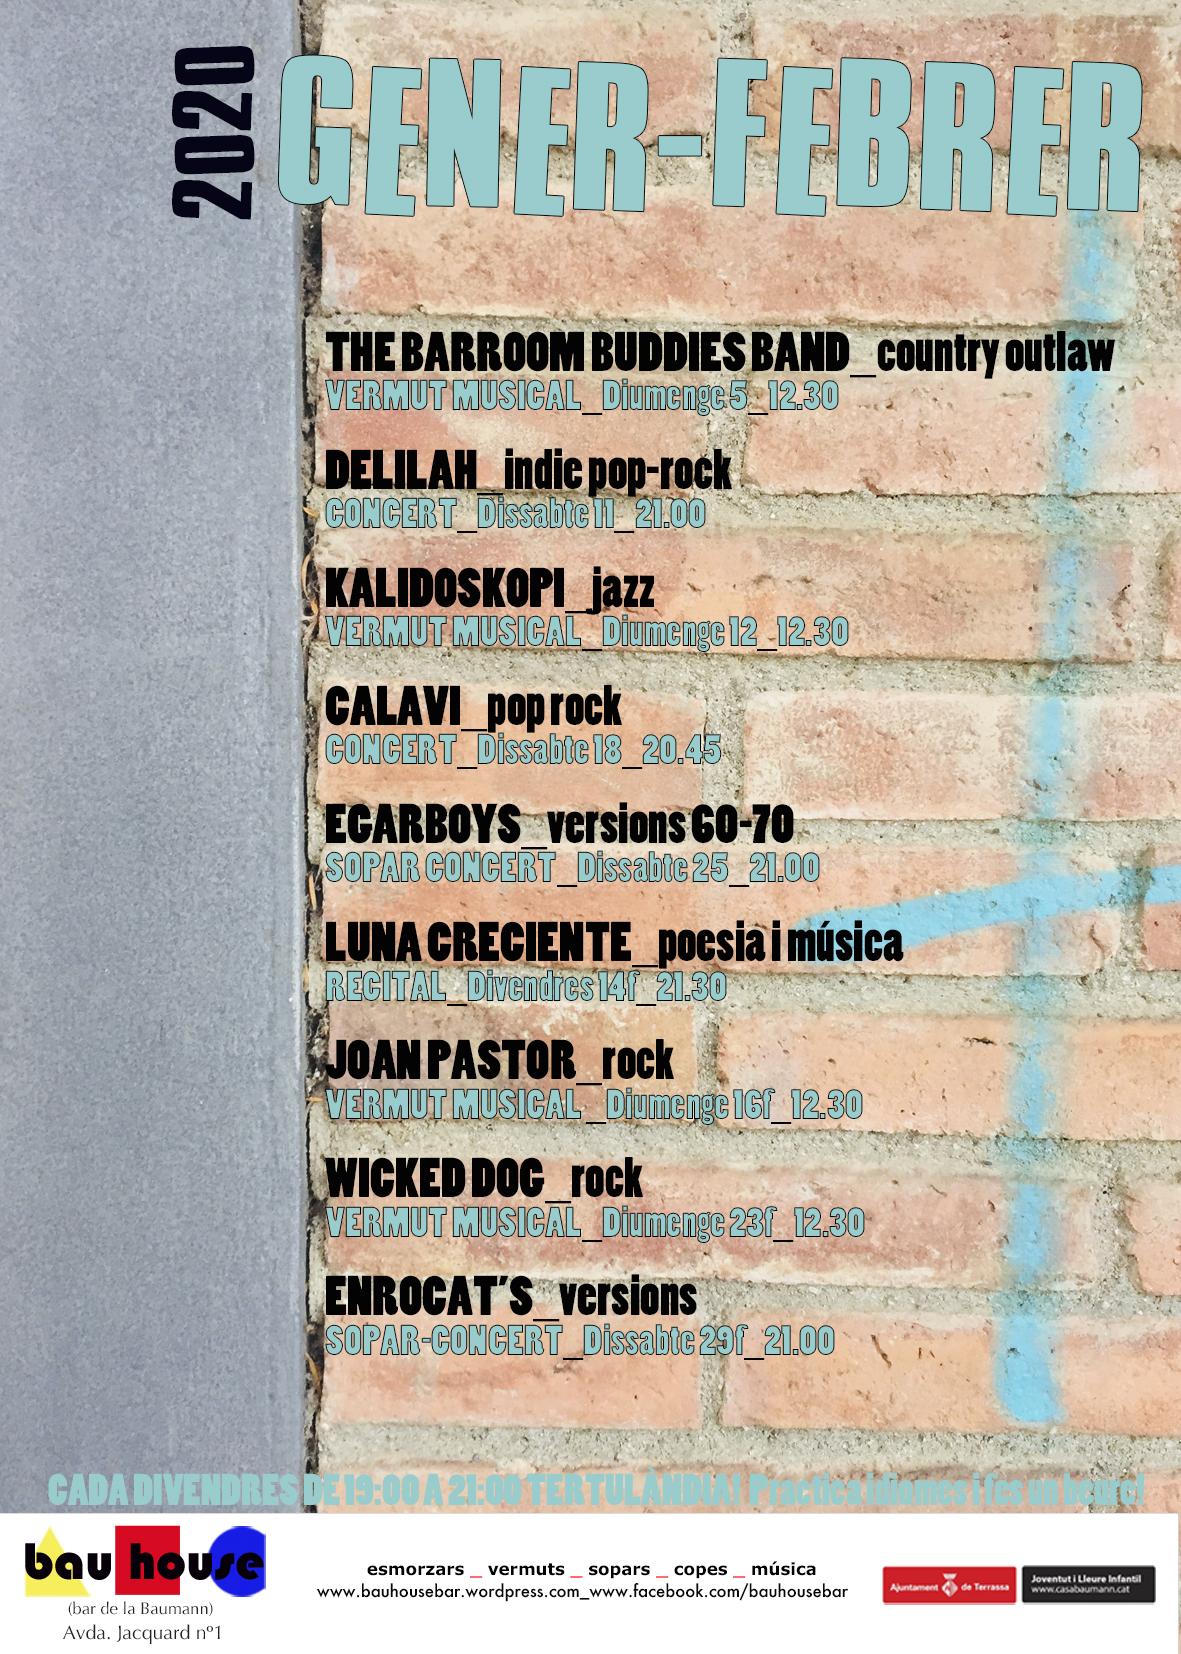 2020
GENER-FEBRER
THE BARROOM BUDDIES BAND_country outlaw
VERMUT MUSICAL_Diumenge 5_12.30
DELILAH_indie pop-rock
CONCERT_Dissabte 11_21.00
KALIDOSKOPI_jazz
VERMUT MUSICAL_Diumenge 12_12.30
CALAVI_pop rock
CONCERT_Dissabte 18_20.45
EGARBOYS_versions 60-70
SOPAR CONCERT_Dissabte 25_21.00
LUNA CRECIENTE_poesia i música
RECITAL_Divendres 14f_21.30
JOAN PASTOR_rock
VERMUT MUSICAL_Diumenge 16f_12.30
WICKED DOG_rock
VERMUT MUSICAL_Diumenge 23f_12.30
ENROCAT'S_versions
SOPAR-CONCERT_Dissabte 29f_21.00
CADA DIVENDRES DE 19:00 A 21:00 TERTULÀNDIA! Practica idiomes i fes un beure!
bau house
(bar de la Baumann)
Avda. Jacquard nº1
esmorzars _ vermuts _ sopars _ copes _ música
www.bauhousebar.wordpress.com_www.facebook.com/bauhousebar
Ajuntament de Terrassa
Joventut i Lleure Infantil
www.casabaumann.cat